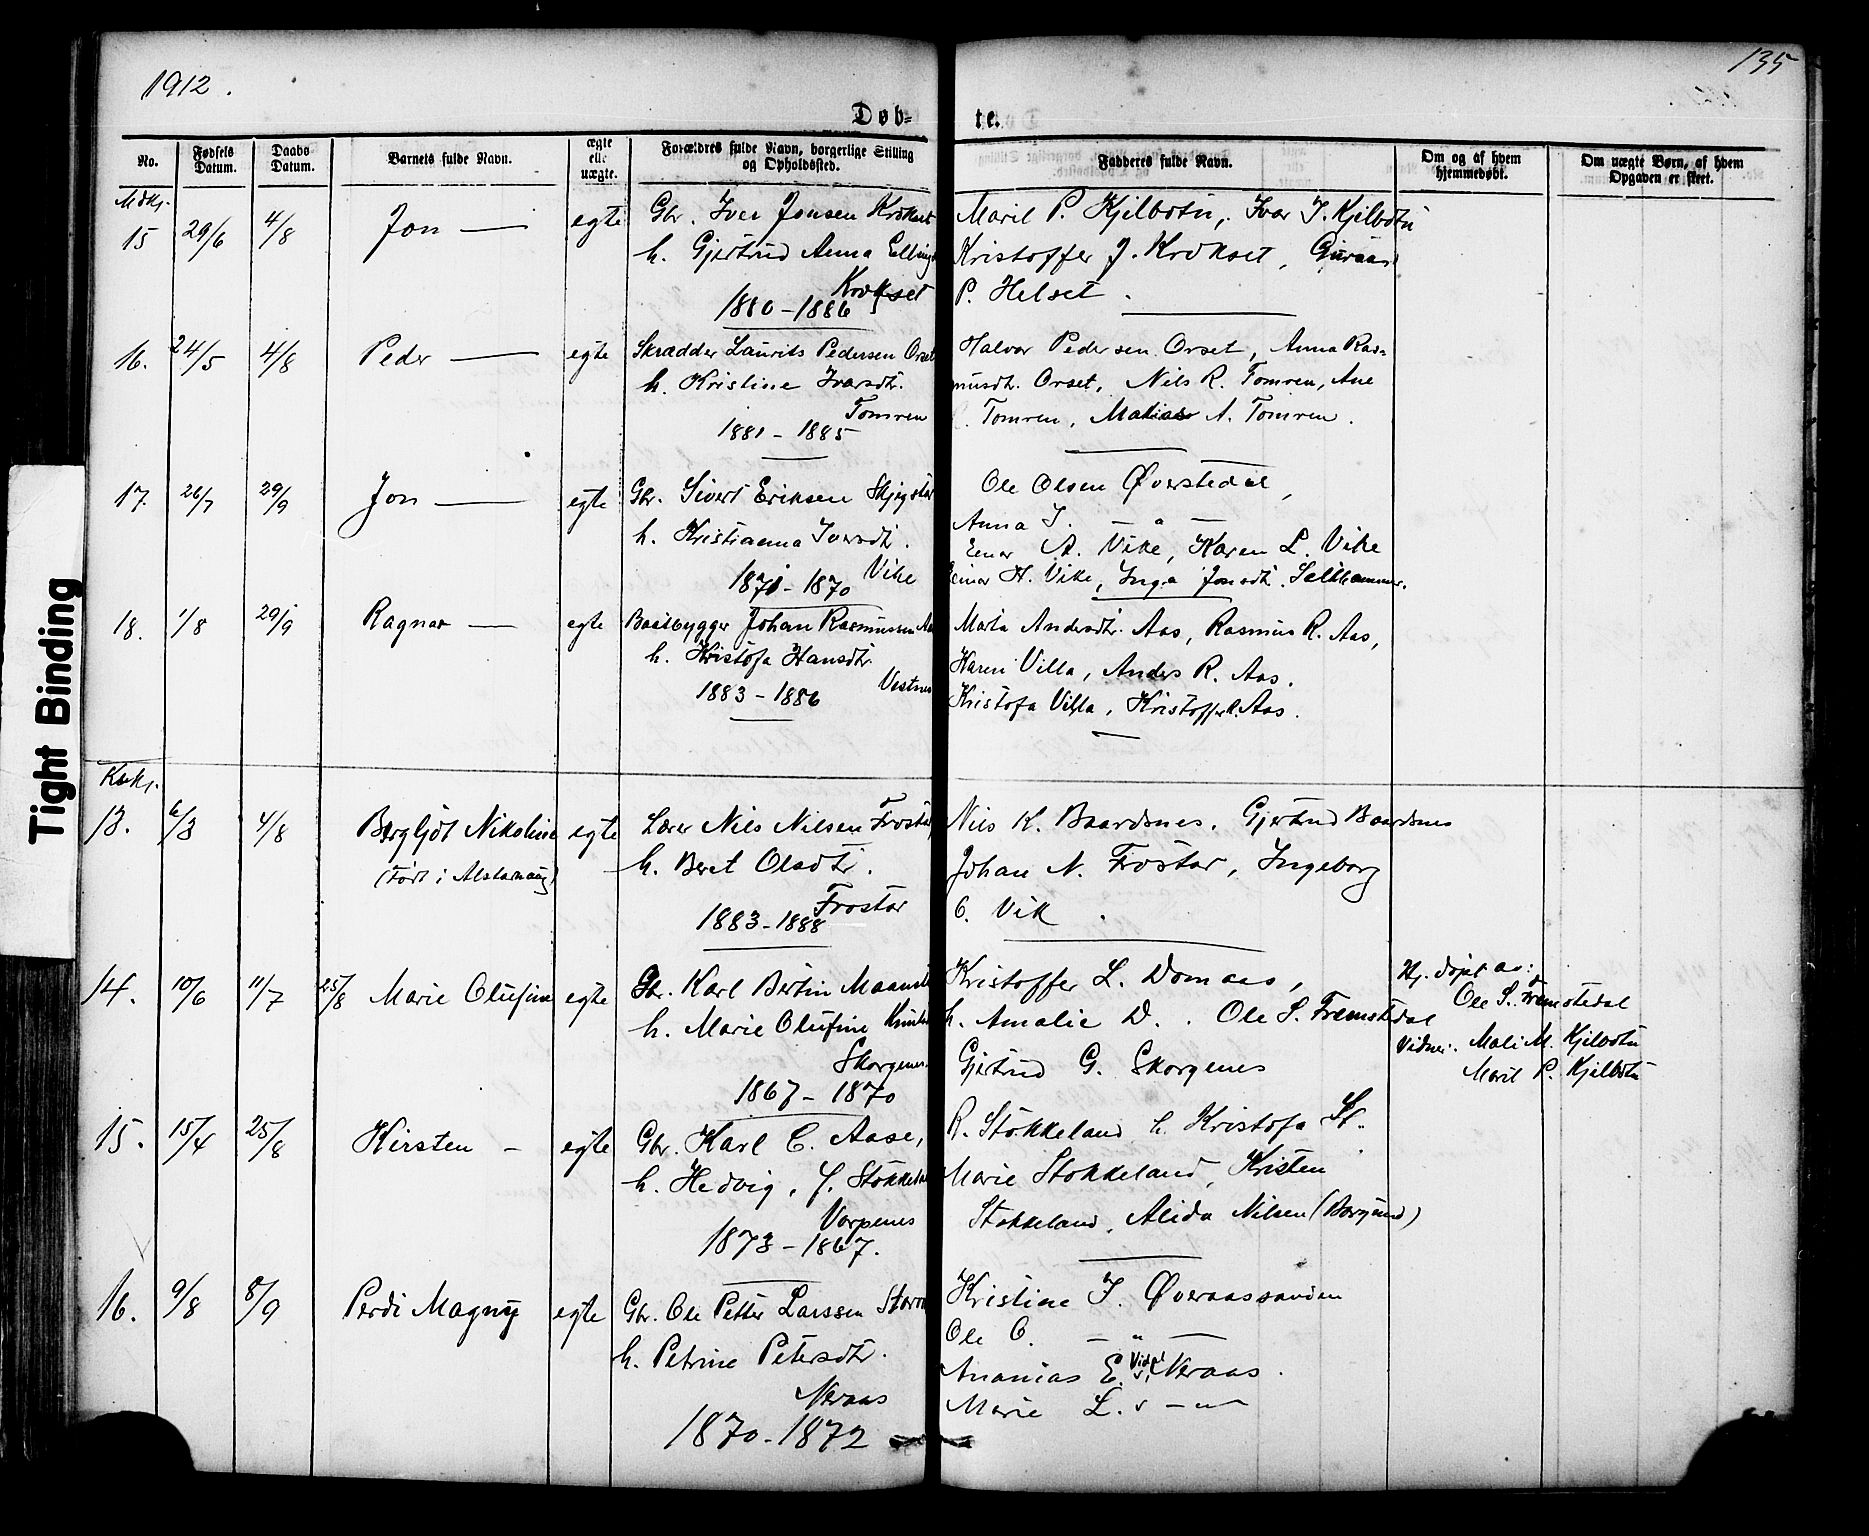 1912.
135
Døb-
te.
No.
Fødsels Datum.
Daabs Datum.
Barnets fulde Navn.
ægte elle uægte.
Forældres fulde Navn, borgerlige Stilling og Opholdssted.
Fadderes fulde Navn.
Om og af hvem hjemmedøbt.
Om uægte Børn, af hvem Opgaven er skeet.
15 29/6 4/8 Jon — egte Gbr. Iver Jonsen Krokset
h. Gjertrud Anna Ellings
Krokset
1880 - 1886
Marit P. Kjelbotn, Ivar I. Kjelbotn
Kristoffer J. Krokset,
P. Helset.
16. 24/5 4/8 Peder — egte Skrædder Laurits Pedersen Orset
h. Kristine Ivarsdtr.
Tomren
1881 - 1885
Halvor Pedersen Orset, Anna Ras-
musdtr. Orset, Nils R. Tomren, Ane
Tomren, Matias A. Tomren.
17. 26/7 29/9 Jon — egte Gbr. Sivert Eriksen
h. Kristianna Iversdtr.
Vike
1871 - 1870
Ole Olsen Øverstedal,
Anna I. — " —
Einar A. Vike, Karen L. Vike
Einar H. Vike, Inga Jonsdtr. Salthammer.
18. 1/8 29/9 Ragnar — egte Baatbygger Johan Rasmussen Aas
h. Kristofa Hansdtr
Vestnes
1883 - 1886
Marta Andersdtr. Aas, Rasmus R. Aas,
Karen Villa, Anders R. Aas.
Kristofa Villa, Kristoffer R. Aas.
13. 6/3 4/8 Bergljot Nikoline egte Lærer Nils Nilsen Frostad
(Født i Alstahaug) h. Beret Olsdtr.
Frostad
1883 - 1888
Nils K. Baardsnes. Gjertrud Baardsnes
Johan N. Frostad, Ingeborg
O. Vik.
14. 10/6 11/7 25/8 Marie Olufine egte Gbr. Karl Bertin
h. Marie Olufine
Skorgenes.
1867 - 1870
Kristoffer L. Domaas,
h. Amalie D. . Ole S. Fremstedal
Gjertrud G. Skorgenes
Hj. døpt av:
Ole S. Fremstedal
Vidner: Mali M. Kjelbotn
Marit P. Kjelbotn
15. 15/4 25/8 Kirsten - egte Gbr. Karl C. Aase,
h. Hedvig, f. Stokkeland
Vorpenes
1873 - 1867.
R. Stokkeland h. Kristofa St.
Marie Stokkeland, Kristen
Stokkeland, Alida Nilsen (Borgund)
16. 9/8 8/9 Perdi Magny egte Gbr. Ole Petter Larssen
h. Petrine Petersdtr.
Neraas
1870 - 1872
Kristine I. Øveraassanden
Ole O. — " —
Ananias E. Neraas.
Marie L. — " —
Tight Binding